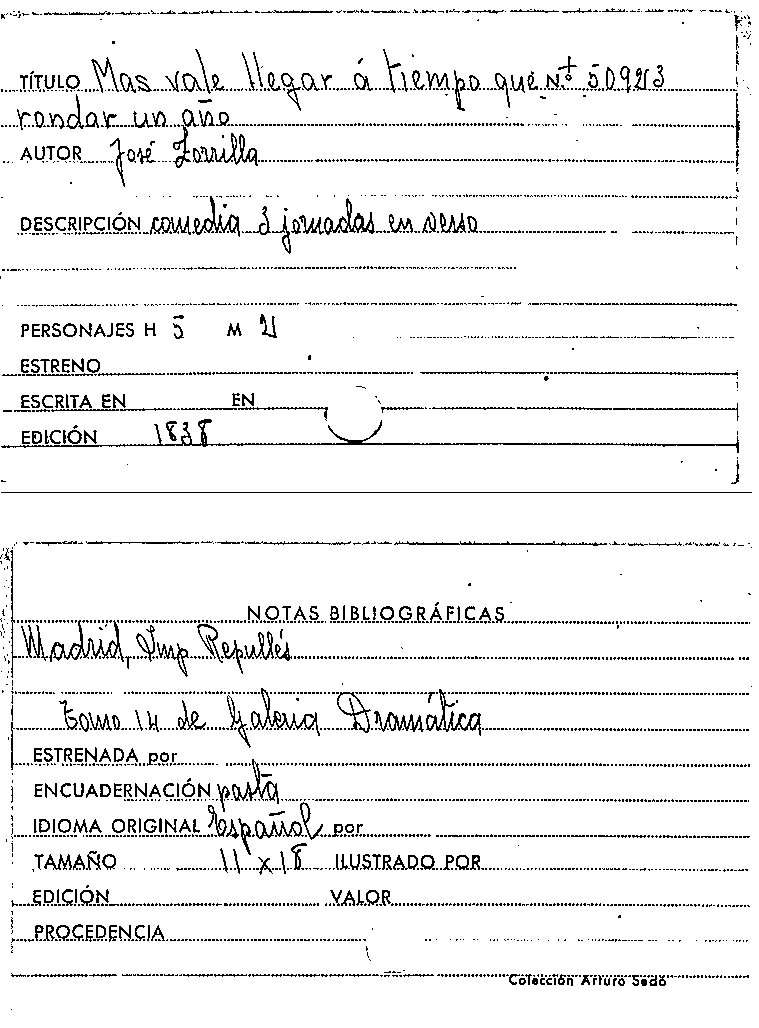 TÍTULO Mas vale llegar á tiempo que Nt 50923
rondar un año
AUTOR José Zorrilla
DESCRIPCIÓN comedia 3 jornadas en verso
PERSONAJES H 5 M 2
ESTRENO
ESCRITA EN EN
EDICIÓN 1838
NOTAS BIBLIOGRÁFICAS
Madrid, Imp Repullés
Tomo 14 de Galeria Dramática
ESTRENADA por
ENCUADERNACIÓN pasta
IDIOMA ORIGINAL Español por
TAMAÑO 11 x 18 ILUSTRADO POR
EDICIÓN VALOR
PROCEDENCIA
Colección Arturo Sedó